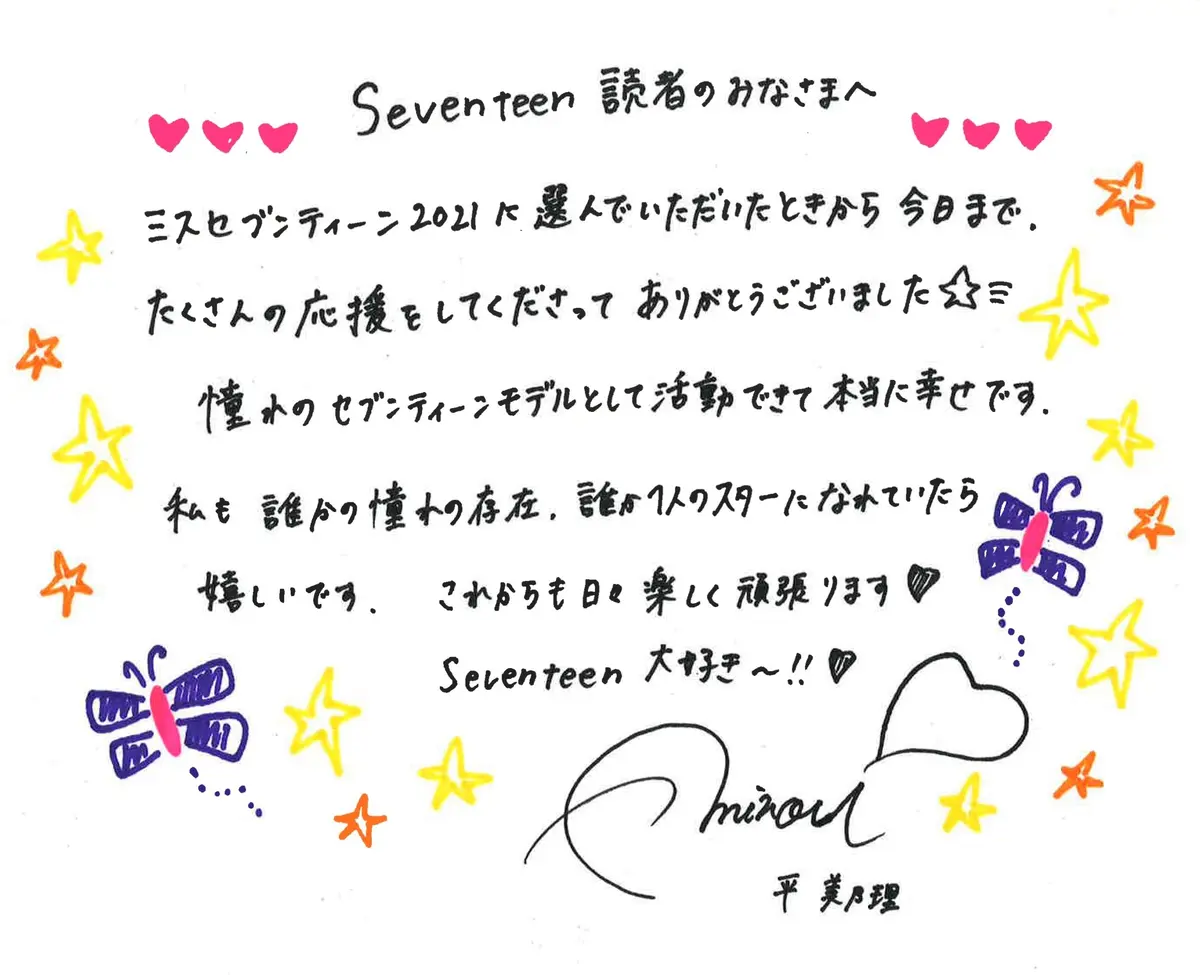 Seventeen 読者のみなさまへ
ミスセブンティーン2021に選んでいただいたときから今日まで、
たくさんの応援をしてくださってありがとうございました☆彡
憧れのセブンティーンモデルとして活動できて本当に幸せです。
私も誰かの憧れの存在、誰か1人のスターになれていたら
嬉しいです。 これからも日々楽しく頑張ります♥
Seventeen 大好き〜!!♥
minori
平 美乃理